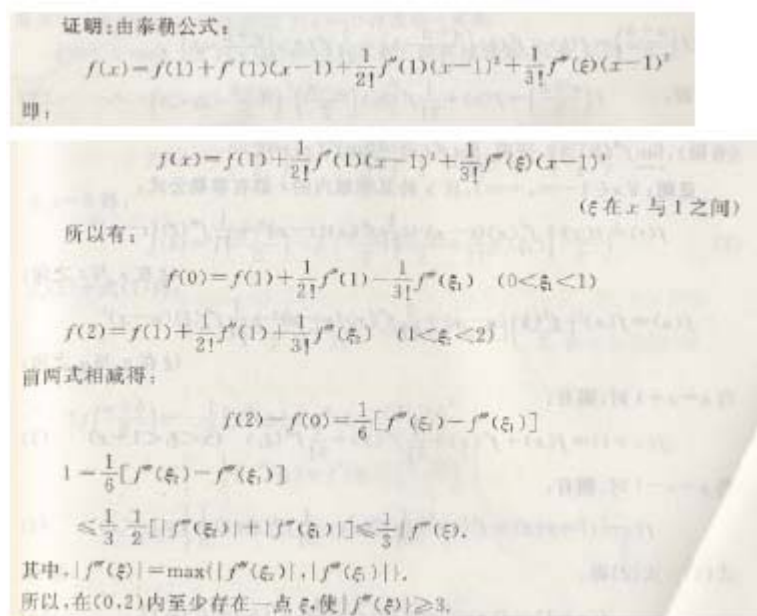 证明:由泰勒公式:
f(x)=f(1)+f'(1)(x-1)+\frac{1}{2!}f''(1)(x-1)²+\frac{1}{3!}f'''(ξ)(x-1)³
即:
f(x)=f(1)+\frac{1}{2!}f''(1)(x-1)²+\frac{1}{3!}f'''(ξ)(x-1)³
(ξ在x与1之间)
所以有:
f(0)=f(1)+\frac{1}{2!}f''(1)-\frac{1}{3!}f'''(ξ₁) (0<ξ₁<1)
f(2)=f(1)+\frac{1}{2!}f''(1)+\frac{1}{3!}f'''(ξ₂) (1<ξ₂<2)
前两式相减得:
f(2)-f(0)=\frac{1}{6}[f'''(ξ₂)-f'''(ξ₁)]
1=\frac{1}{6}[f'''(ξ₂)-f'''(ξ₁)]
≤\frac{1}{3}·\frac{1}{2}[|f'''(ξ₂)|+|f'''(ξ₁)|]≤\frac{1}{3}|f'''(ξ).
其中,|f'''(ξ)|=max{|f'''(ξ₂)|,|f'''(ξ₁)|}.
所以,在(0,2)内至少存在一点ξ,使|f'''(ξ)|≥3.